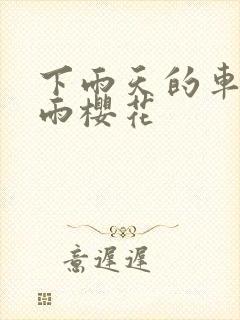 下雨天的車
雨櫻花
意遲遲